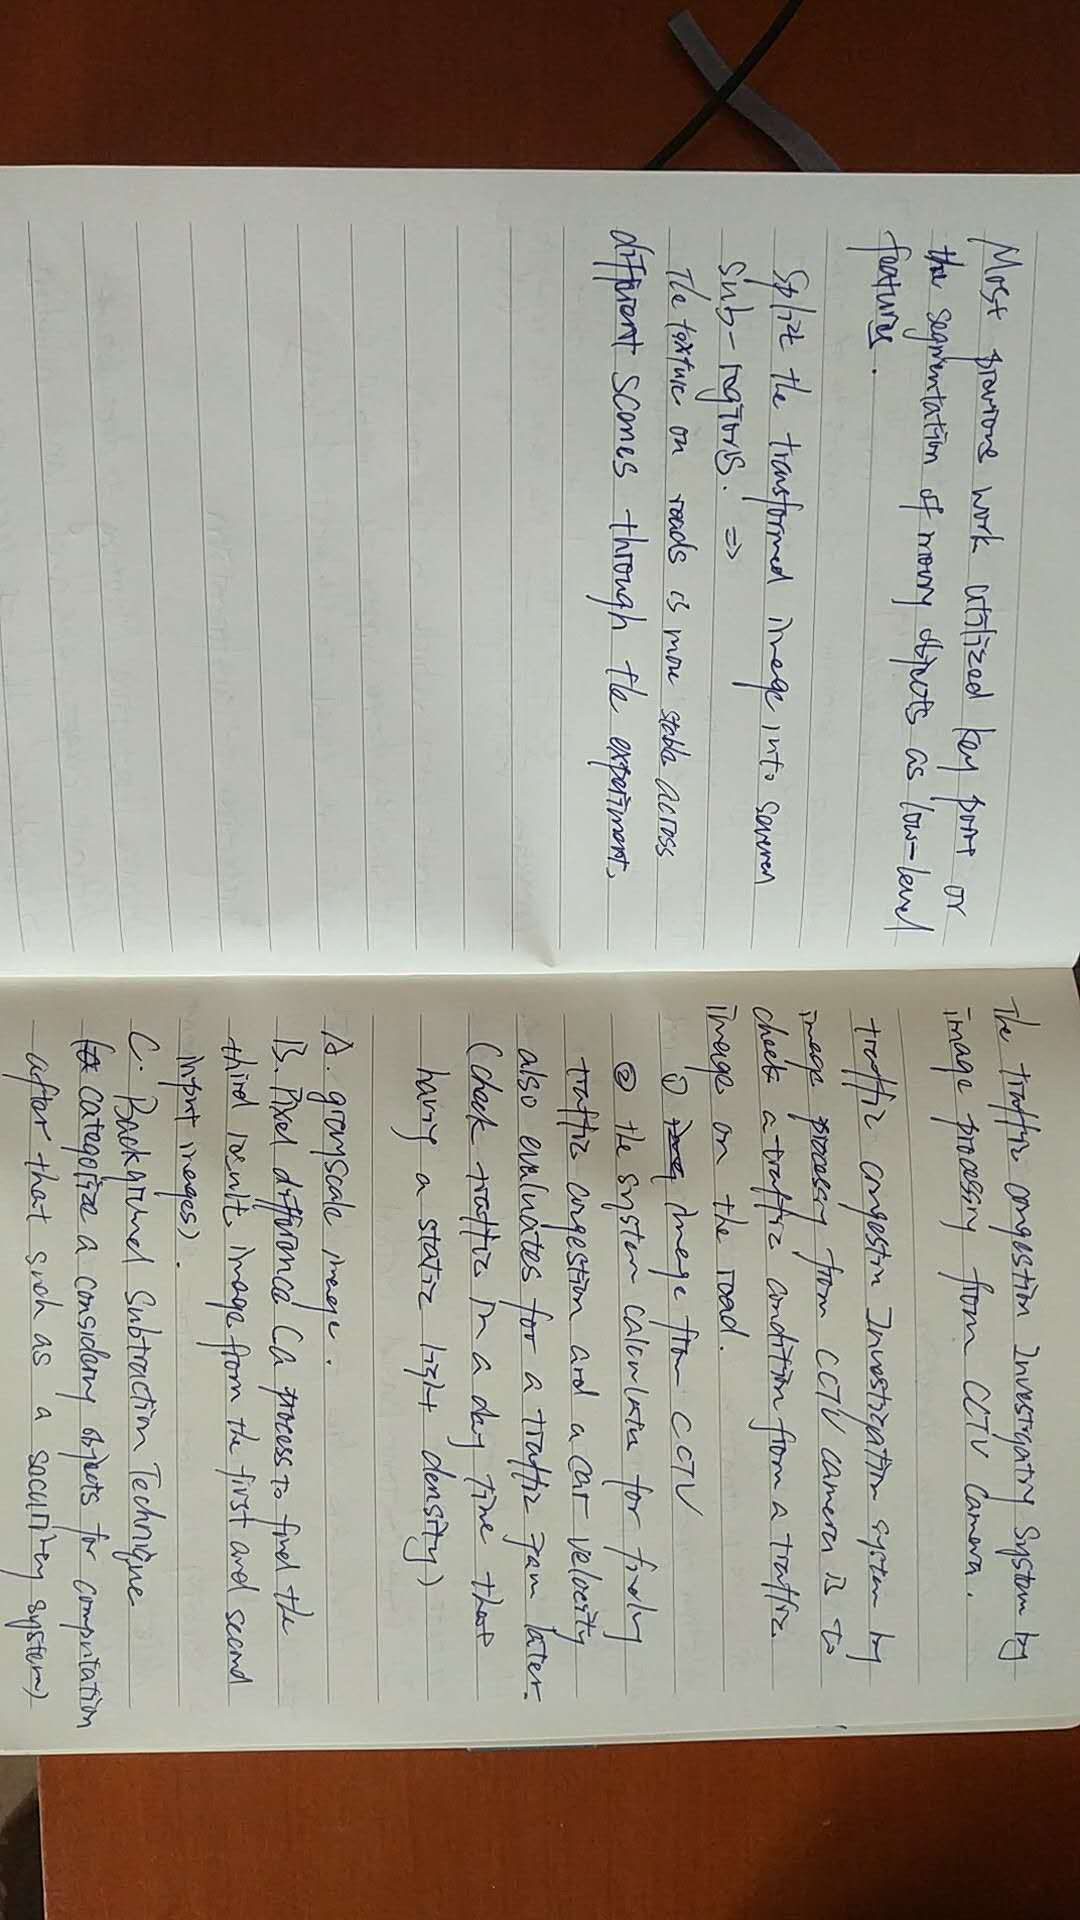 Most previous work utilized key point or
the segmentation of moving objects as low-level
features.
Split the transformed image into several
sub-regions. =>
The texture on roads is more stable across
different scenes through the experiment.
The traffic congestion Investigating System by
image processing from CCTV Camera.
traffic congestion Investigation system by
image processing from CCTV camera is to
check a traffic condition from a traffic
image on the road.
① image from CCTV
② the system calculates for finding
traffic congestion and a car velocity
also evaluates for a traffic jam later.
(check traffic in a day time that
having a static light density)
A. grayscale image.
B. Pixel difference (a process to find the
third result image from the first and second
input images).
C. Background Subtraction Technique
categorize a considering objects for computation
after that such as a security system)